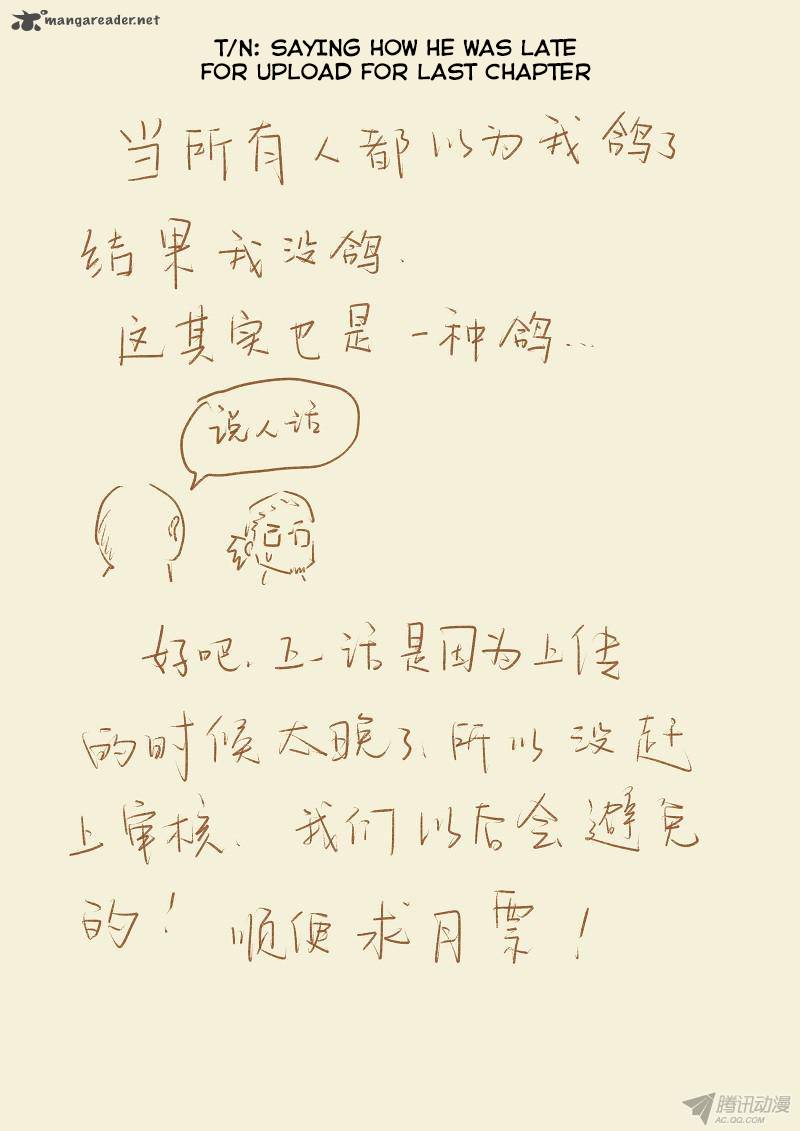 mangareader.net
T/N: SAYING HOW HE WAS LATE
FOR UPLOAD FOR LAST CHAPTER
当所有人都以为我鸽了
结果我没鸽.
这其实也是一种鸽...
说人话
好吧. 五一话是因为上传
的时候太晚了、所以没赶
上审核、我们以后会避免
的！顺便求月票！
腾讯动漫
AC.QQ.COM